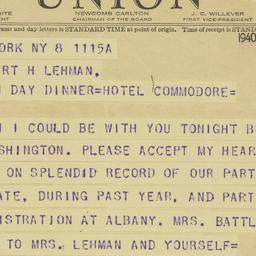 UNION
NEWCOMB CARLTON J. C. WILLEVER
CHAIRMAN OF THE BOARD FIRST VICE-PRESIDENT
ame and day letters is STANDARD TIME at point of origin. Time of receipt is STANDARD
1940
ORK NY 8 1115A
RT H LEHMAN,
DAY DINNER=HOTEL COMMODORE=
I COULD BE WITH YOU TONIGHT B
SHINGTON. PLEASE ACCEPT MY HEAR
ON SPLENDID RECORD OF OUR PART
ATE, DURING PAST YEAR, AND PART
ISTRATION AT ALBANY. MRS. BATTL
TO MRS. LEHMAN AND YOURSELF=